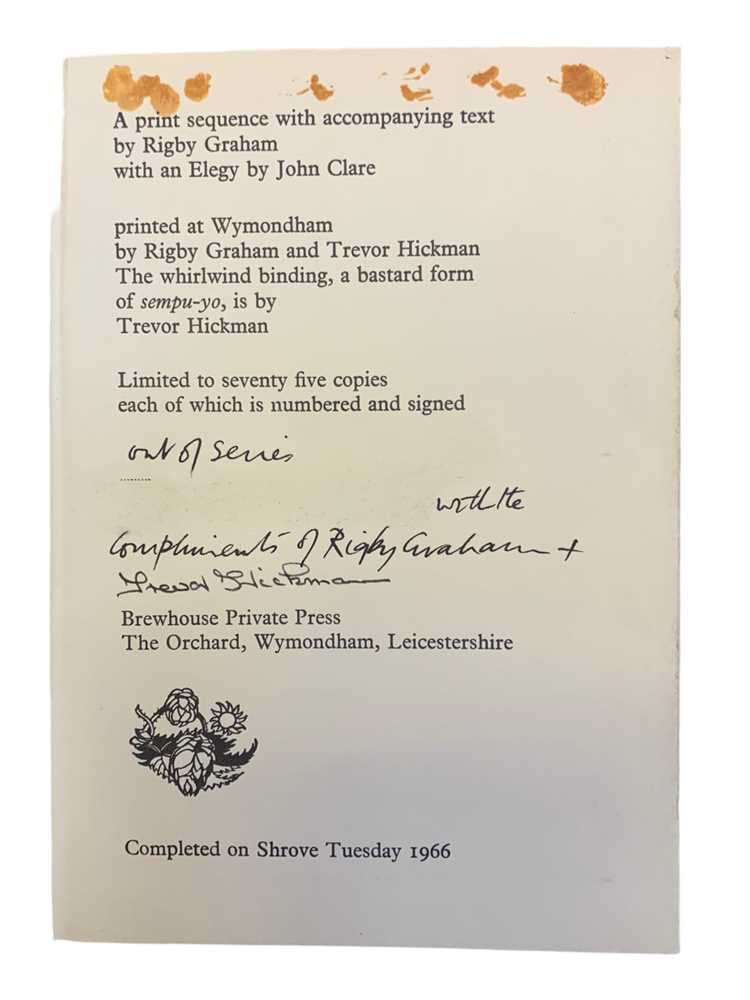 A print sequence with accompanying text
by Rigby Graham
with an Elegy by John Clare
printed at Wymondham
by Rigby Graham and Trevor Hickman
The whirlwind binding, a bastard form
of sempu-yo, is by
Trevor Hickman
Limited to seventy five copies
each of which is numbered and signed
out of series
with the
Compliments of Rigby Graham +
Trevor Hickman
Brewhouse Private Press
The Orchard, Wymondham, Leicestershire
Completed on Shrove Tuesday 1966